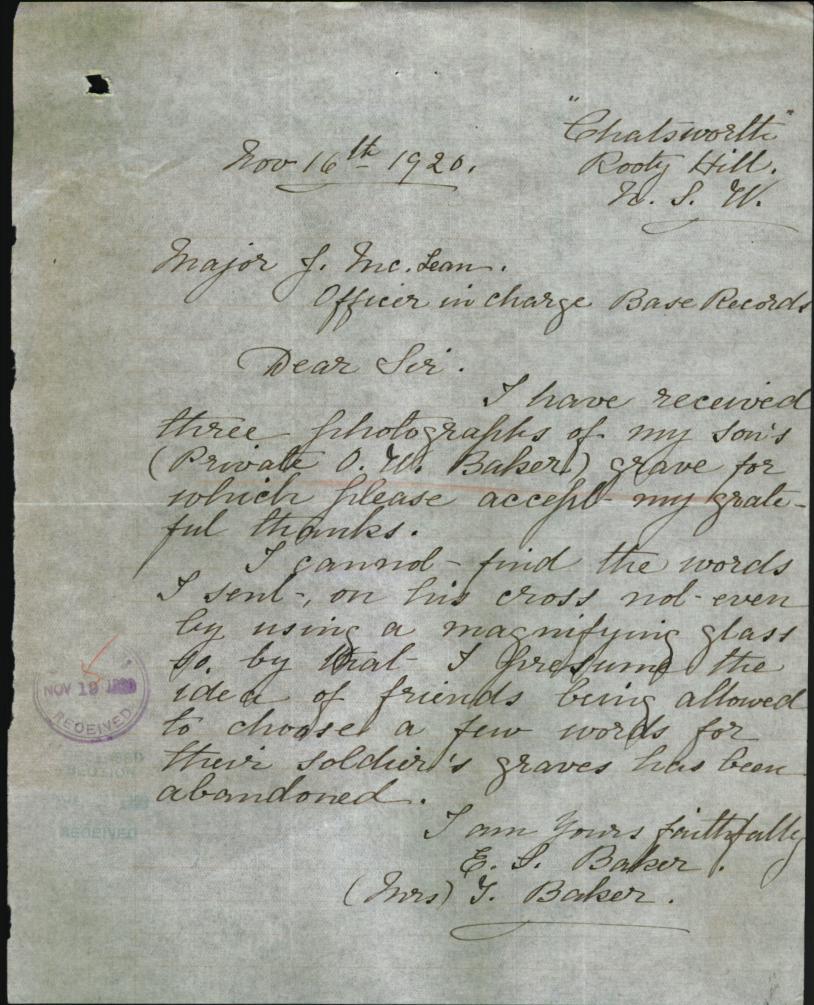 "Chatsworth"
Nov 16th 1920.
Rooty Hill.
N. S. W.
Major J. Mc. Lean.
Officer in charge Base Records
Dear Sir.
I have received
three photographs of my son's
(Private O. W. Baker) grave for
which please accept my grate-
ful thanks.
I cannot find the words
I sent, on his cross not even
by using a magnifying glass
so. by that I presume the
idea of friends being allowed
to choose a few words for
their soldier's graves has been
abandoned.
I am Yours faithfully
E. S. Baker.
(Mrs) T. Baker.
NOV 19
RECEIVED
RECEIVED